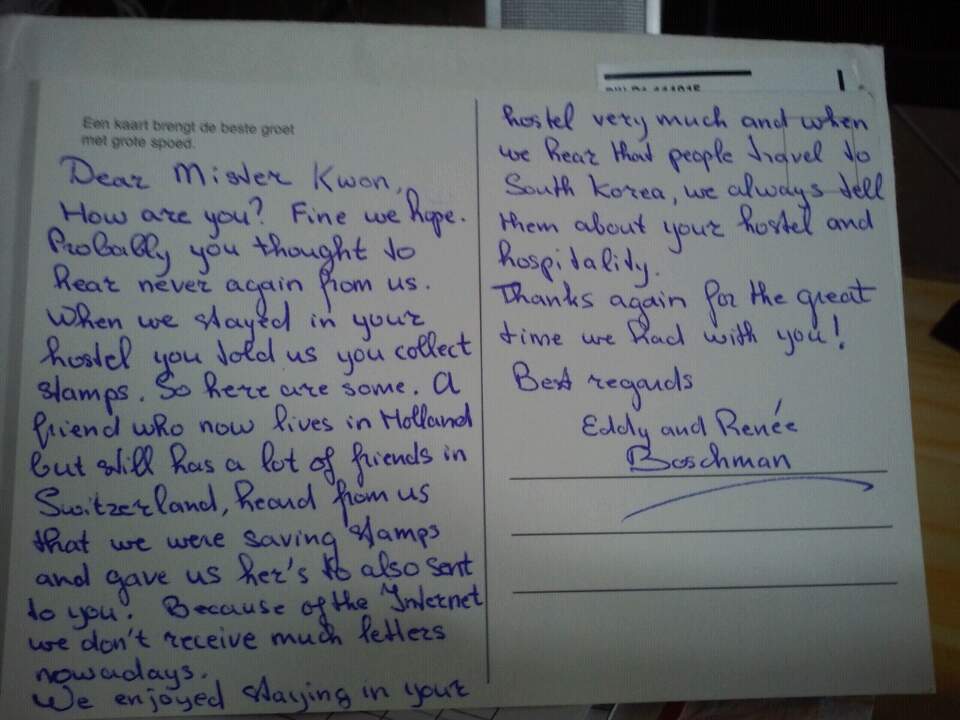 Een kaart brengt de beste groet
met grote spoed.
Dear Mister Kwon,
How are you? Fine we hope.
Probably you thought to
hear never again from us.
When we stayed in your
hostel you told us you collect
stamps. So here are some. A
friend who now lives in Holland
but still has a lot of friends in
Switzerland, heard from us
that we were saving stamps
and gave us her's to also sent
to you. Because of the Internet
we don't receive much letters
nowadays.
We enjoyed staying in your
hostel very much and when
we hear that people travel to
South Korea, we always tell
them about your hostel and
hospitality.
Thanks again for the great
time we had with you!
Best regards
Eddy and Renée
Boschman